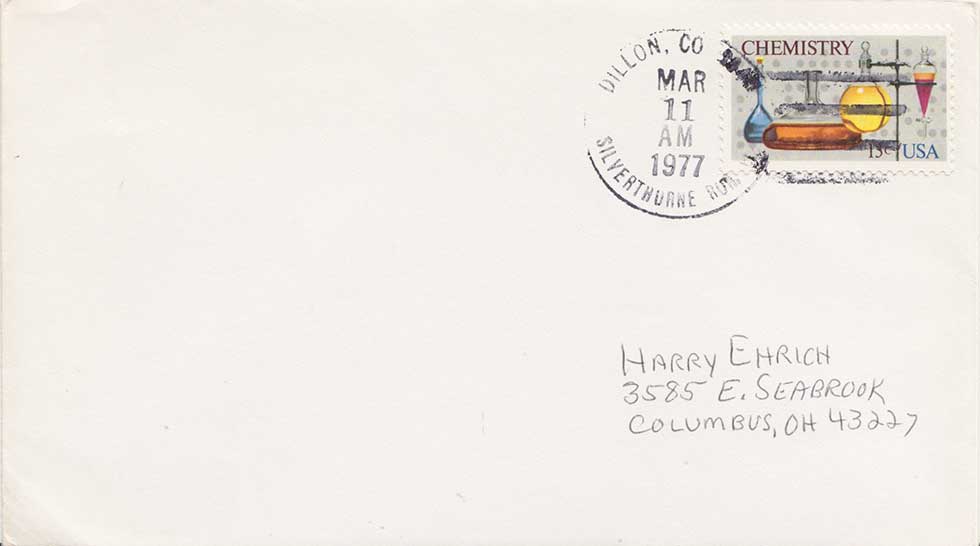 DILLON, CO
MAR
11
AM
1977
SILVERTHORNE RUR
CHEMISTRY
13c USA
HARRY EHRICH
3585 E. SEABROOK
COLUMBUS, OH 43227